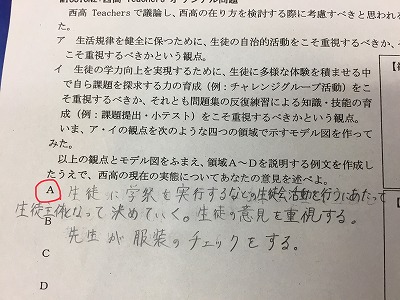 西高 Teachers オリジナル問題
西高 Teachers で議論し、西高の在り方を検討する際に考慮すべきと思われ
た
ア 生活規律を健全に保つために、生徒の自治的活動をこそ重視するべきか、そ
こそ重視するべきかという観点。
イ 生徒の学力向上を実現するために、生徒に多様な体験を積ませる中
で自ら課題を探求する力の育成（例：チャレンジグループ活動）をこ
そ重視するべきか、それとも問題集の反復練習による知識・技能の育
成（例：課題提出・小テスト）をこそ重視するべきかという観点。
いま、ア・イの観点を次のような四つの領域で示すモデル図を作って
みた。
以上の観点とモデル図をふまえ、領域A～Dを説明する例文を作成し
たうえで、西高の現在の実態についてあなたの意見を述べよ。
A 生徒に学祭を実行するなどの生徒会活動を行うにあたって
生徒主体となって決めていく。生徒の意見を重視する。
B
先生が服装のチェックをする。
C
D